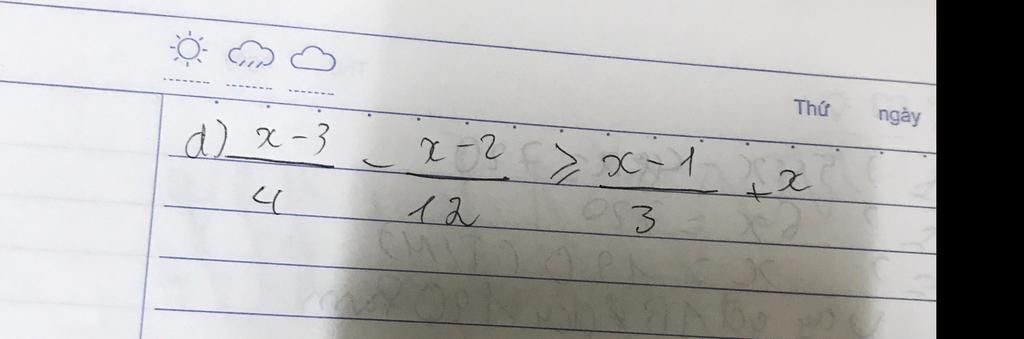 Thứ ngày
d) \frac{x-3}{4} - \frac{x-2}{12} ⩾ \frac{x-1}{3} + x